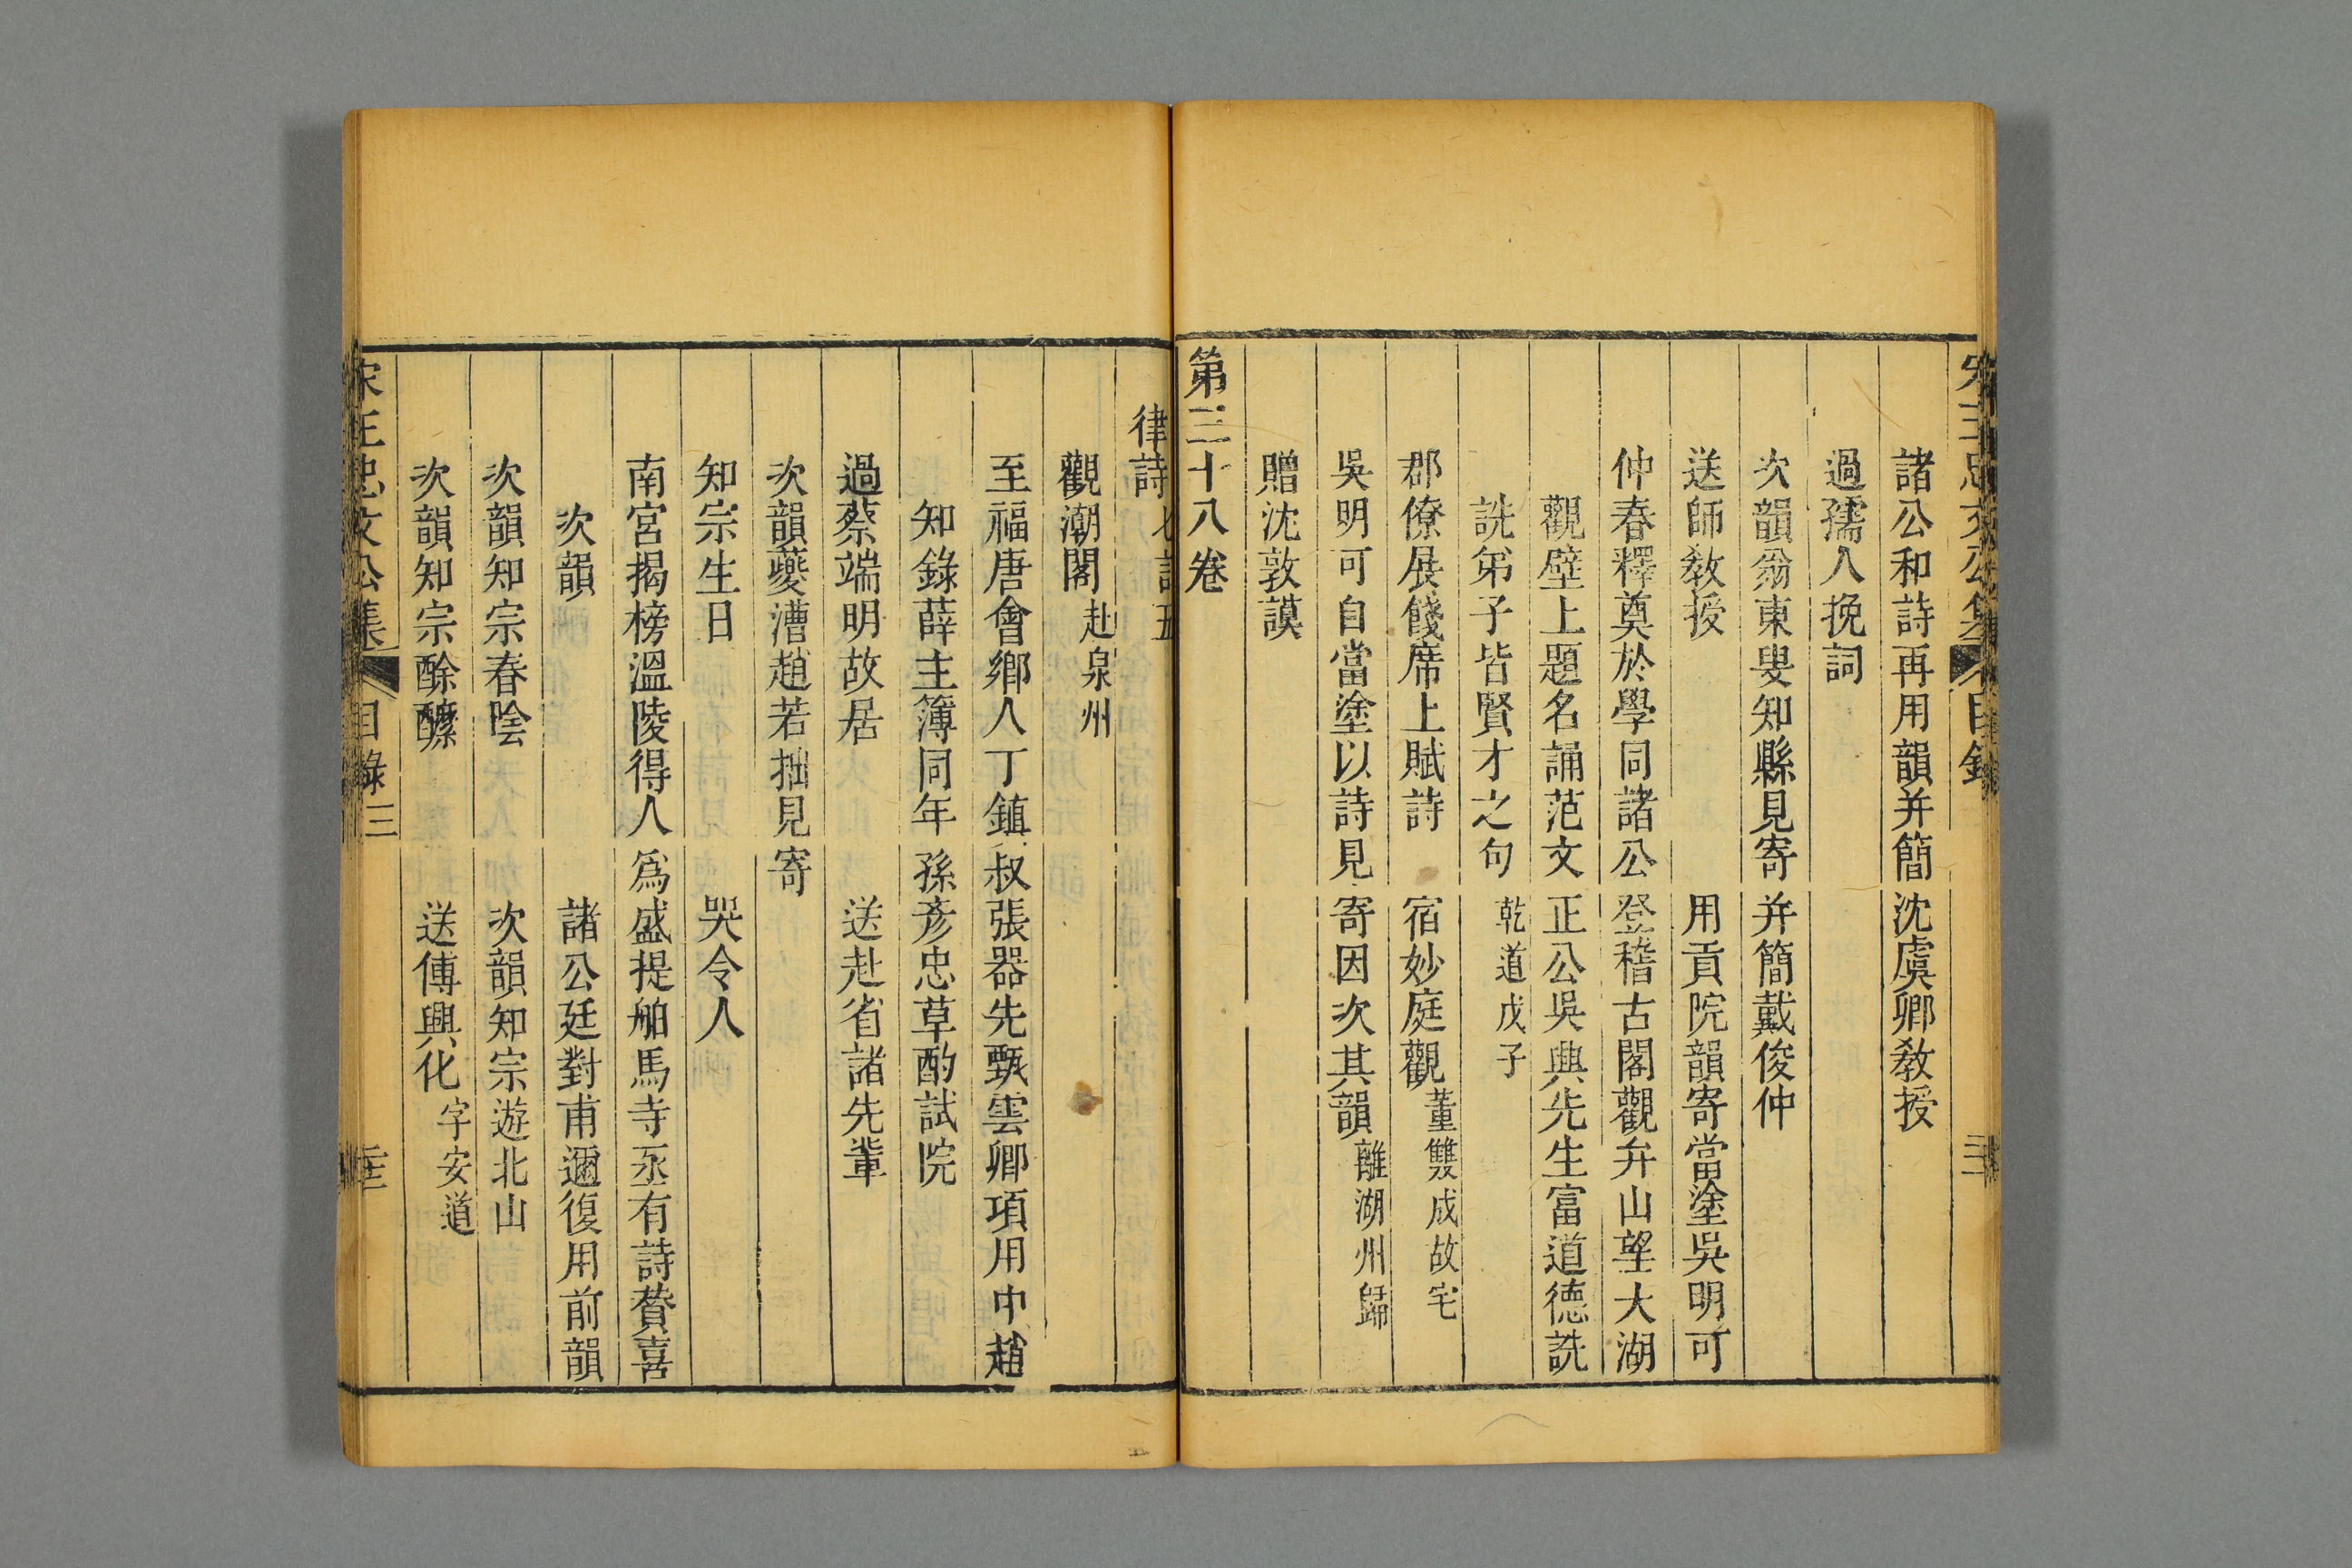 諸公和詩再用韻并簡沈虞卿教授
過孺人挽詞
次韻翁東叟知縣見寄并簡戴俊仲
送師教授　用貢院韻寄當塗吳明可
仲春釋奠於學同諸公登稽古閣觀弁山望大湖
觀壁上題名誦范文正公吳興先生富道德詵
詵弟子皆賢才之句乾道戊子
郡僚展餞席上賦詩　宿妙庭觀董雙成故宅
吳明可自當塗以詩見寄因次其韻離湖州歸
贈沈敦謨
第三十八卷
律詩
觀潮閣赴泉州
至福唐會鄉人丁鎮叔張器先甄雲卿項用中趙
知錄薛主簿同年孫彥忠草酌試院
過蔡端明故居　送赴省諸先輩
次韻夔漕趙若拙見寄
知宗生日　哭令人
南宮揭榜溫陵得人為盛提舶馬寺丞有詩贊喜
次韻　諸公廷對甫邇復用前韻
次韻知宗春陰　次韻知宗遊北山
次韻知宗酴醾　送傅興化字安道
宋王忠文公集　目錄三